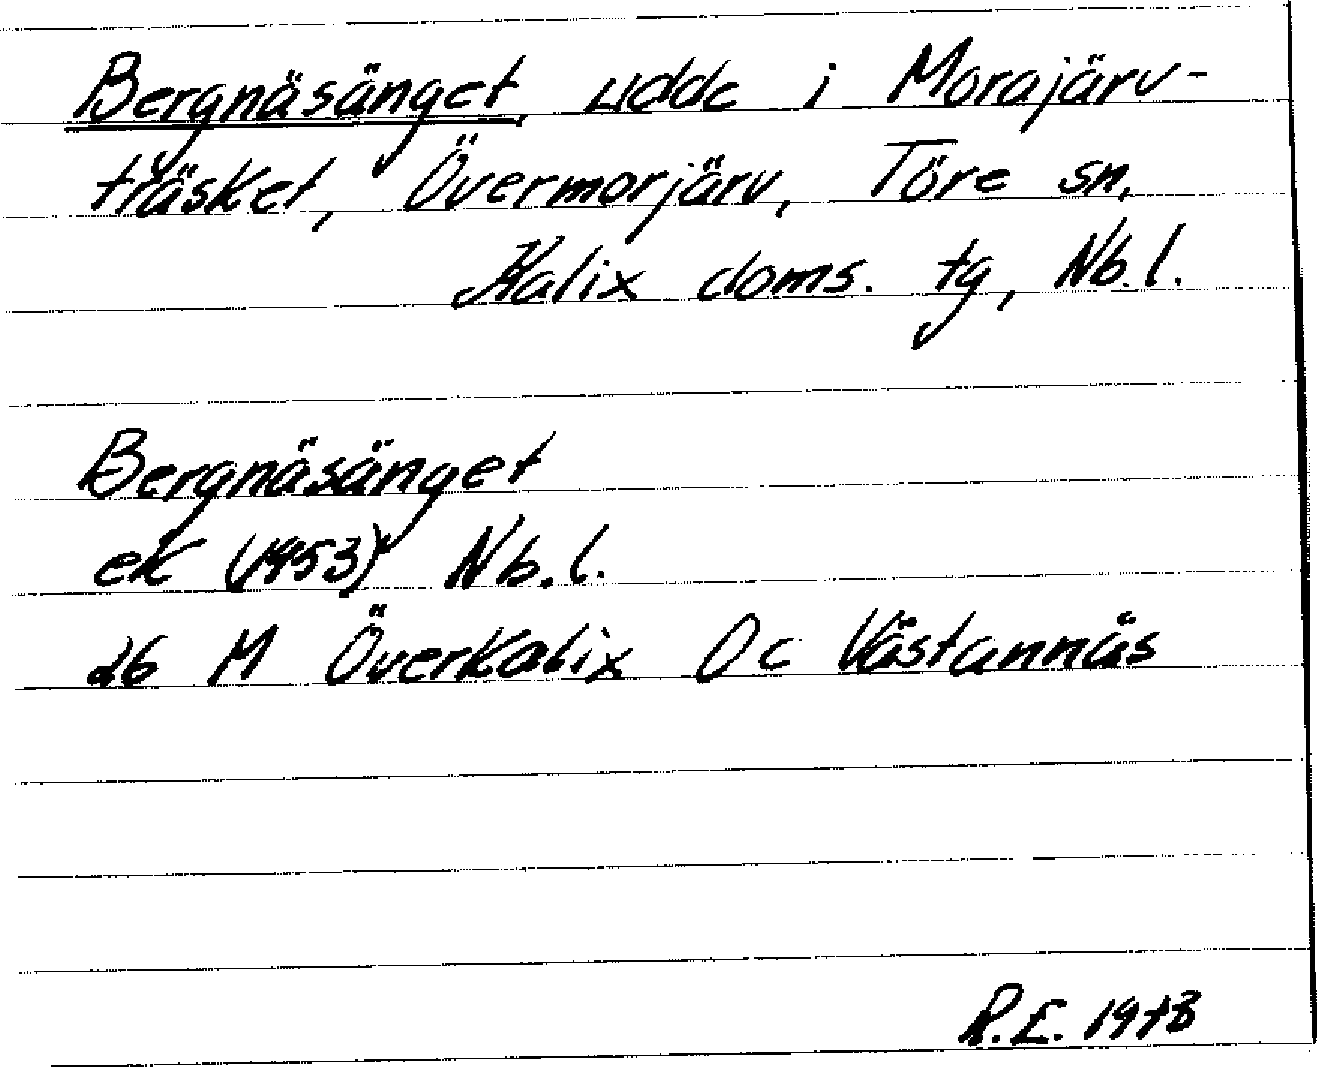 Bergnäsänget, udde i Morajärv-
träsket, Övermorjärv, Töre sn,
Kalix doms. tg, Nb.l.
Bergnäsänget
ek (1953) Nb.l.
26 M Överkalix Oc Västannäs
R.L. 1978